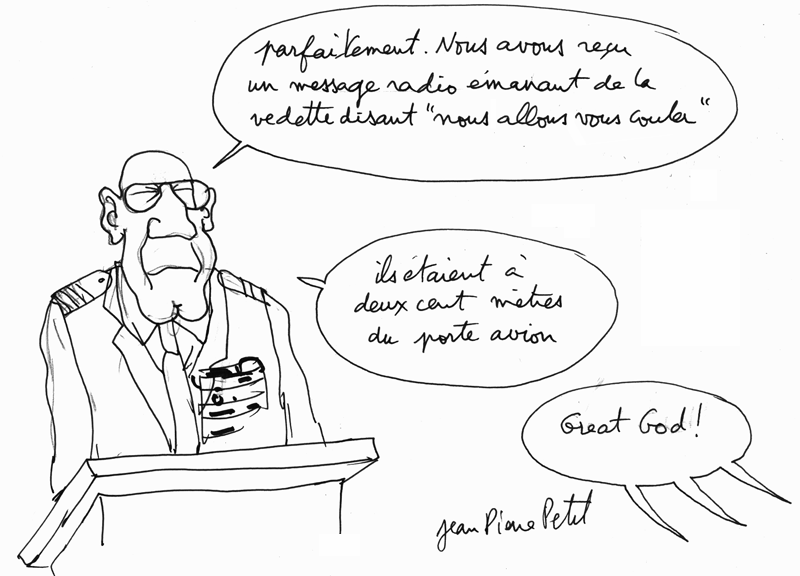 parfaitement. Nous avons reçu
un message radio émanant de la
vedette disant "nous allons vous couler"
ils étaient à
deux cent mètres
du porte avion
Great God!
Jean Pierre Petit